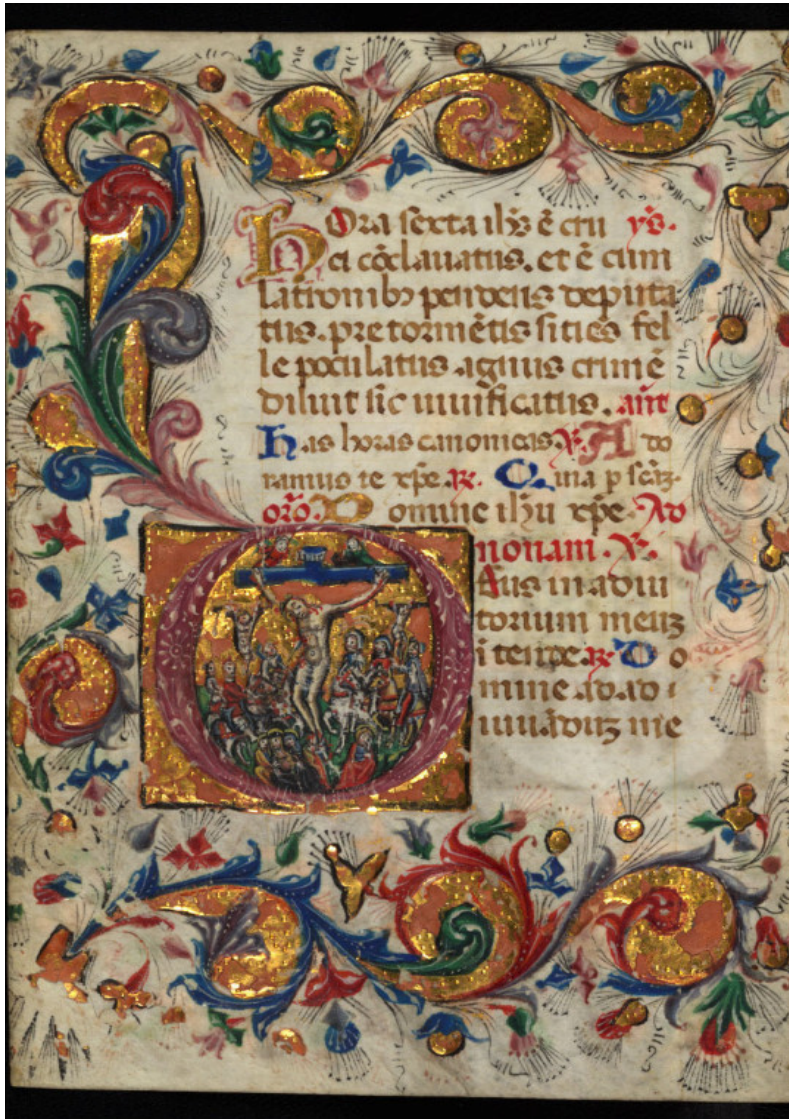 hOra sexta ihs̄ ē cru ys̄.
ci cōclauatus. et ē cum
latronibꝫ pendens deputa
tus. pre tormētis sities fel
le poculatus. agnus crimē
diluit sic uiuificatus. añt
has horas canonicas. ꝟ. Ado
ramus te xp̄e. ꝶ. Quia p
orō. Domine ihū xp̄e. Ad
nonam. ꝟ.
Deus in adiu
torium meuꝫ
ītende. ꝶ. Do
mine ad adi
uuāduꝫ me